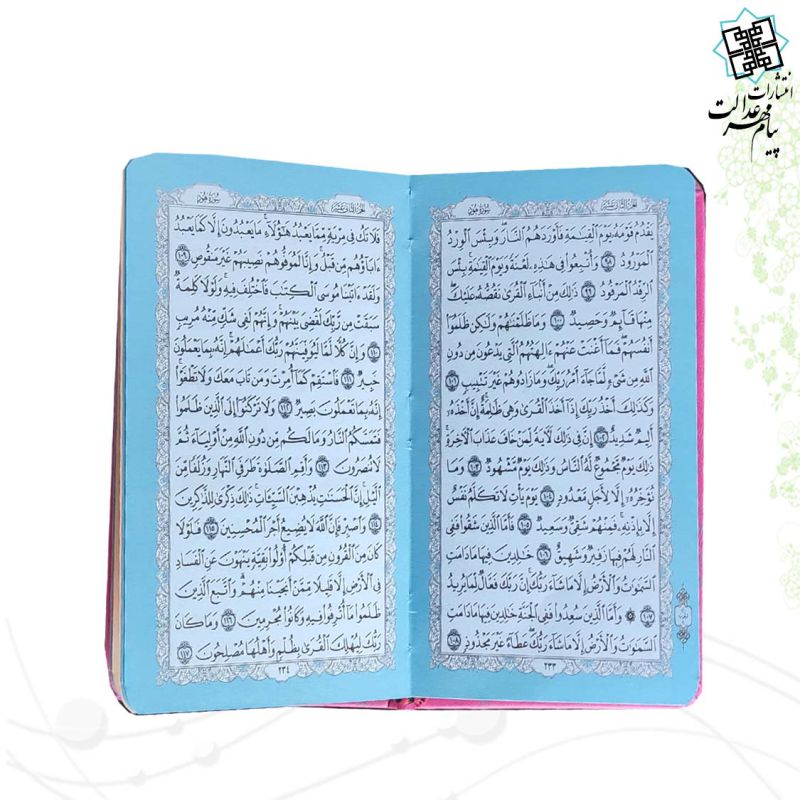 انتشارات
پیام مهر عدالت
الجزء الثانی عشر
سورة هود
يَقْدُمُ قَوْمَهُ يَوْمَ الْقِيٰمَةِ فَأَوْرَدَهُمُ النَّارَ وَبِئْسَ الْوِرْدُ
الْمَوْرُودُ ٩٨ وَأُتْبِعُوا فِي هَٰذِهِ لَعْنَةً وَيَوْمَ الْقِيٰمَةِ بِئْسَ
الرِّفْدُ الْمَرْفُودُ ٩٩ ذَٰلِكَ مِنْ أَنْبَاءِ الْقُرَىٰ نَقُصُّهُ عَلَيْكَ
مِنْهَا قَائِمٌ وَحَصِيدٌ ١٠٠ وَمَا ظَلَمْنٰهُمْ وَلٰكِنْ ظَلَمُوا
أَنْفُسَهُمْ فَمَا أَغْنَتْ عَنْهُمْ ءَالِهَتُهُمُ الَّتِي يَدْعُونَ مِنْ دُونِ
اللَّهِ مِنْ شَيْءٍ لَمَّا جَاءَ أَمْرُ رَبِّكَ وَمَا زَادُوهُمْ غَيْرَ تَتْبِيبٍ ١٠١
وَكَذَٰلِكَ أَخْذُ رَبِّكَ إِذَا أَخَذَ الْقُرَىٰ وَهِيَ ظٰلِمَةٌ إِنَّ أَخْذَهُ
أَلِيمٌ شَدِيدٌ ١٠٢ إِنَّ فِي ذَٰلِكَ لَآيَةً لِمَنْ خَافَ عَذَابَ الْآخِرَةِ
ذَٰلِكَ يَوْمٌ مَجْمُوعٌ لَهُ النَّاسُ وَذَٰلِكَ يَوْمٌ مَشْهُودٌ ١٠٣ وَمَا
نُؤَخِّرُهُ إِلَّا لِأَجَلٍ مَعْدُودٍ ١٠٤ يَوْمَ يَأْتِ لَا تَكَلَّمُ نَفْسٌ
إِلَّا بِإِذْنِهِ فَمِنْهُمْ شَقِيٌّ وَسَعِيدٌ ١٠٥ فَأَمَّا الَّذِينَ شَقُوا فَفِي
النَّارِ لَهُمْ فِيهَا زَفِيرٌ وَشَهِيقٌ ١٠٦ خٰلِدِينَ فِيهَا مَا دَامَتِ
السَّمٰوٰتُ وَالْأَرْضُ إِلَّا مَا شَاءَ رَبُّكَ إِنَّ رَبَّكَ فَعَّالٌ لِمَا يُرِيدُ
١٠٧ وَأَمَّا الَّذِينَ سُعِدُوا فَفِي الْجَنَّةِ خٰلِدِينَ فِيهَا مَا دَامَتِ
السَّمٰوٰتُ وَالْأَرْضُ إِلَّا مَا شَاءَ رَبُّكَ عَطَاءً غَيْرَ مَجْذُوذٍ ١٠٨
٢٣٣
الجزء الثانی عشر
سورة هود
فَلَا تَكُ فِي مِرْيَةٍ مِمَّا يَعْبُدُ هٰؤُلَاءِ مَا يَعْبُدُونَ إِلَّا كَمَا يَعْبُدُ
ءَابَاؤُهُمْ مِنْ قَبْلُ وَإِنَّا لَمُوَفُّوهُمْ نَصِيبَهُمْ غَيْرَ مَنْقُوصٍ ١٠٩
وَلَقَدْ ءَاتَيْنَا مُوسَى الْكِتٰبَ فَاخْتُلِفَ فِيهِ وَلَوْلَا كَلِمَةٌ
سَبَقَتْ مِنْ رَبِّكَ لَقُضِيَ بَيْنَهُمْ وَإِنَّهُمْ لَفِي شَكٍّ مِنْهُ مُرِيبٍ
١١٠ وَإِنَّ كُلًّا لَمَّا لَيُوَفِّيَنَّهُمْ رَبُّكَ أَعْمٰلَهُمْ إِنَّهُ بِمَا يَعْمَلُونَ
خَبِيرٌ ١١١ فَاسْتَقِمْ كَمَا أُمِرْتَ وَمَنْ تَابَ مَعَكَ وَلَا تَطْغَوْا
إِنَّهُ بِمَا تَعْمَلُونَ بَصِيرٌ ١١٢ وَلَا تَرْكَنُوا إِلَى الَّذِينَ ظَلَمُوا
فَتَمَسَّكُمُ النَّارُ وَمَا لَكُمْ مِنْ دُونِ اللَّهِ مِنْ أَوْلِيَاءَ ثُمَّ
لَا تُنْصَرُونَ ١١٣ وَأَقِمِ الصَّلٰوةَ طَرَفَيِ النَّهَارِ وَزُلَفًا مِنَ
اللَّيْلِ إِنَّ الْحَسَنٰتِ يُذْهِبْنَ السَّيِّئَاتِ ذَٰلِكَ ذِكْرَىٰ لِلذَّاكِرِينَ
١١٤ وَاصْبِرْ فَإِنَّ اللَّهَ لَا يُضِيعُ أَجْرَ الْمُحْسِنِينَ ١١٥ فَلَوْلَا
كَانَ مِنَ الْقُرُونِ مِنْ قَبْلِكُمْ أُولُوا بَقِيَّةٍ يَنْهَوْنَ عَنِ الْفَسَادِ
فِي الْأَرْضِ إِلَّا قَلِيلًا مِمَّنْ أَنْجَيْنَا مِنْهُمْ وَاتَّبَعَ الَّذِينَ
ظَلَمُوا مَا أُتْرِفُوا فِيهِ وَكَانُوا مُجْرِمِينَ ١١٦ وَمَا كَانَ
رَبُّكَ لِيُهْلِكَ الْقُرَىٰ بِظُلْمٍ وَأَهْلُهَا مُصْلِحُونَ ١١٧
٢٣٤